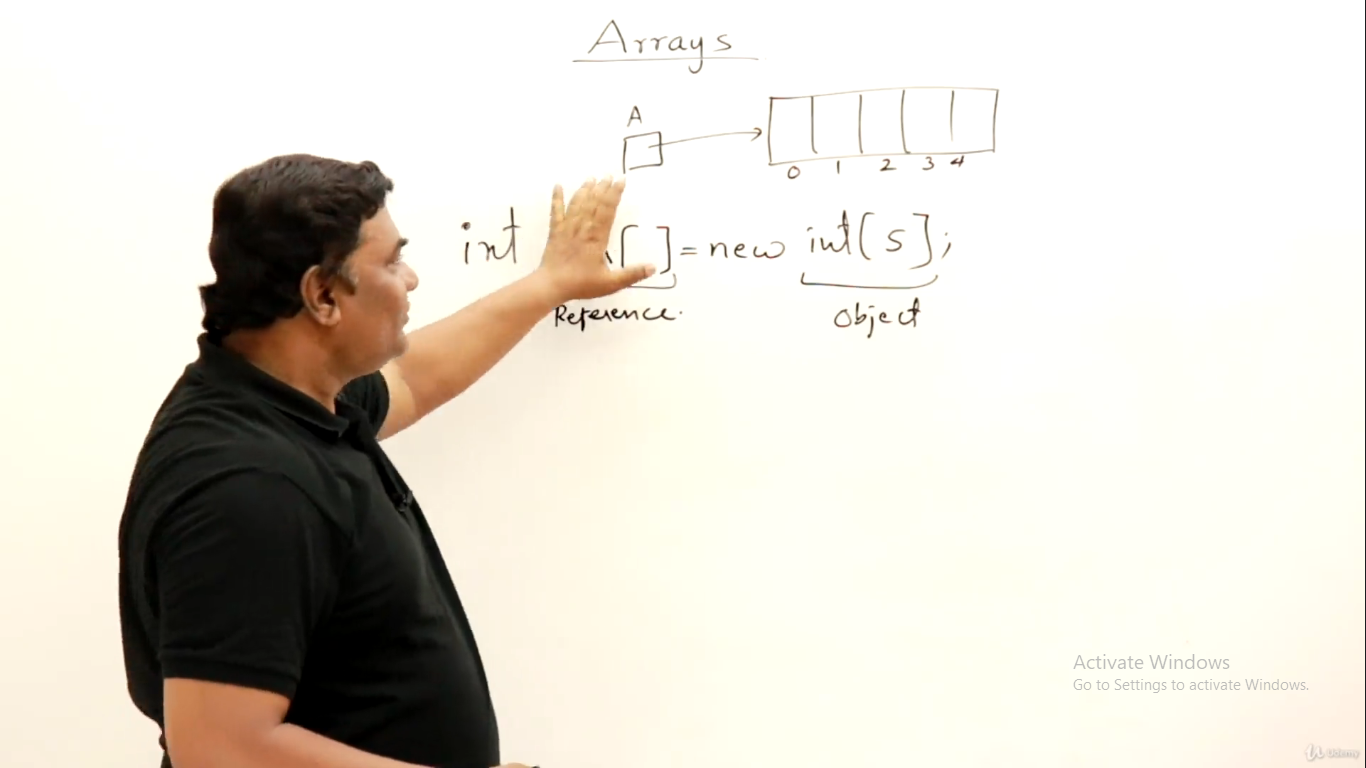 Arrays
A
0 1 2 3 4
int [ ] = new int[5];
Reference.
Object
Activate Windows
Go to Settings to activate Windows.
Udemy